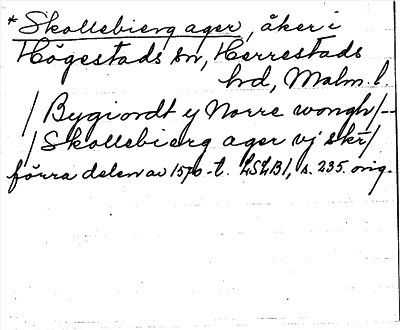 *Skollebierg ager, åker i
Högestads sn, Herrestads
hd, Malm. l.
/Bygiordt y Norre wongh/--
/Skollebierg ager vj skr/
förra delen av 1570-t. LSLB1, s. 235. orig.